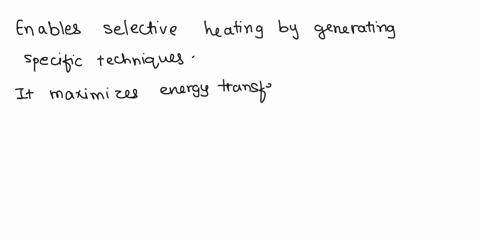 Enables selective heating by generating
specific techniques.
It maximizes energy transf